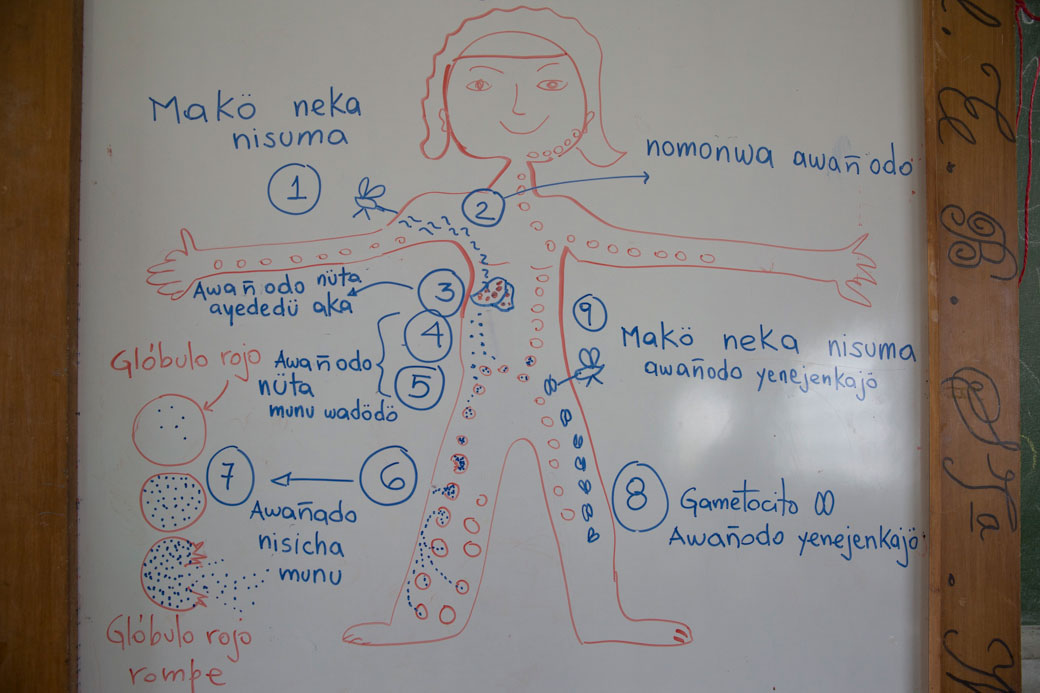 Makö neka
nisuma
1
2
nomonwa awañodo
3
Awañodo nüta
ayededü aka
4
5
Awañodo
nüta
munu wadödö
Glóbulo rojo
6
7
Awañado
nisicha
munu
Glóbulo rojo
rompe
9
Makö neka nisuma
awañodo yenejenkajö
8
Gametocito
Awañodo yenejenkajö